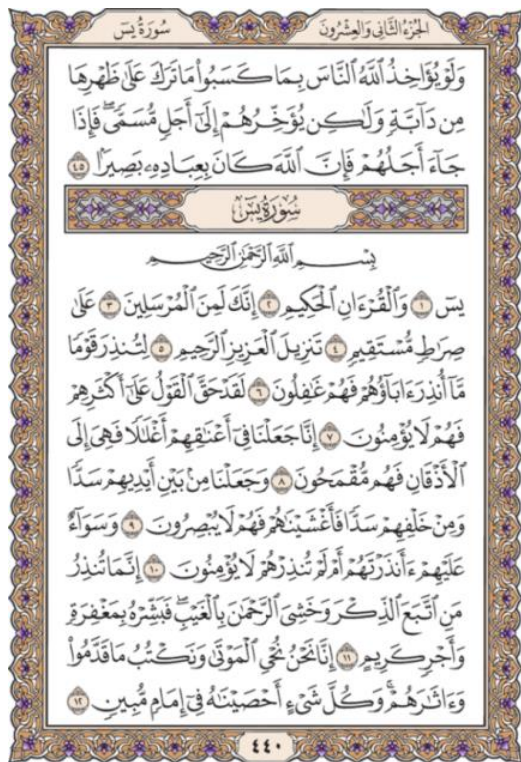 سُورَةُ يسٓ الجُزْءُ الثَّانِي وَالعِشْرُونَ
وَلَوْ يُؤَاخِذُ ٱللَّهُ ٱلنَّاسَ بِمَا كَسَبُواْ مَا تَرَكَ عَلَىٰ ظَهْرِهَا
مِن دَآبَّةٖ وَلَٰكِن يُؤَخِّرُهُمْ إِلَىٰٓ أَجَلٖ مُّسَمّٗىۖ فَإِذَا
جَآءَ أَجَلُهُمْ فَإِنَّ ٱللَّهَ كَانَ بِعِبَادِهِۦ بَصِيرَۢا ٤٥
سُورَةُ يسٓ
بِسْمِ ٱللَّهِ ٱلرَّحْمَٰنِ ٱلرَّحِيمِ
يسٓ ١ وَٱلْقُرْءَانِ ٱلْحَكِيمِ ٢ إِنَّكَ لَمِنَ ٱلْمُرْسَلِينَ ٣ عَلَىٰ
صِرَٰطٖ مُّسْتَقِيمٖ ٤ تَنزِيلَ ٱلْعَزِيزِ ٱلرَّحِيمِ ٥ لِتُنذِرَ قَوْمٗا
مَّآ أُنذِرَ ءَابَآؤُهُمْ فَهُمْ غَٰفِلُونَ ٦ لَقَدْ حَقَّ ٱلْقَوْلُ عَلَىٰٓ أَكْثَرِهِمْ
فَهُمْ لَا يُؤْمِنُونَ ٧ إِنَّا جَعَلْنَا فِيٓ أَعْنَٰقِهِمْ أَغْلَٰلٗا فَهِيَ إِلَى
ٱلْأَذْقَانِ فَهُم مُّقْمَحُونَ ٨ وَجَعَلْنَا مِنۢ بَيْنِ أَيْدِيهِمْ سَدّٗا
وَمِنْ خَلْفِهِمْ سَدّٗا فَأَغْشَيْنَٰهُمْ فَهُمْ لَا يُبْصِرُونَ ٩ وَسَوَآءٌ
عَلَيْهِمْ ءَأَنذَرْتَهُمْ أَمْ لَمْ تُنذِرْهُمْ لَا يُؤْمِنُونَ ١٠ إِنَّمَا تُنذِرُ
مَنِ ٱتَّبَعَ ٱلذِّكْرَ وَخَشِيَ ٱلرَّحْمَٰنَ بِٱلْغَيْبِۖ فَبَشِّرْهُ بِمَغْفِرَةٖ
وَأَجْرٖ كَرِيمٍ ١١ إِنَّا نَحْنُ نُحْيِ ٱلْمَوْتَىٰ وَنَكْتُبُ مَا قَدَّمُواْ
وَءَاثَٰرَهُمْۚ وَكُلَّ شَيْءٍ أَحْصَيْنَٰهُ فِيٓ إِمَامٖ مُّبِينٖ ١٢
٤٤٠